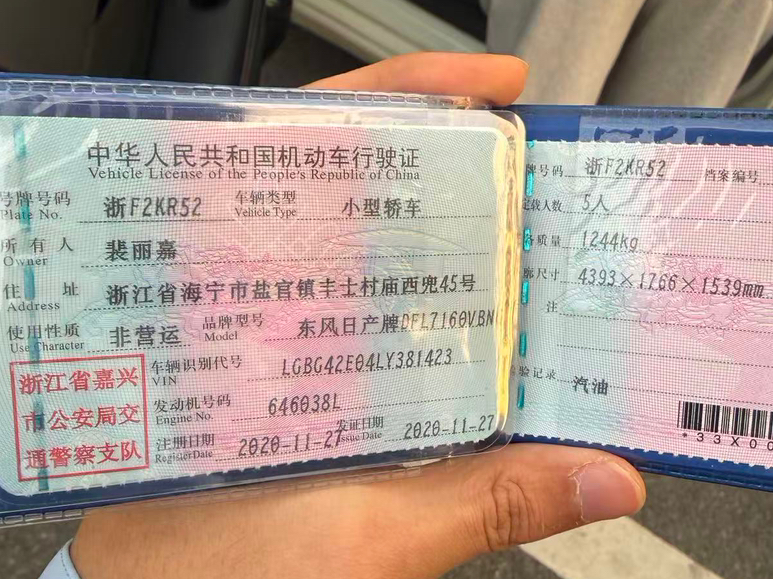 中华人民共和国机动车行驶证
Vehicle License of the People's Republic of China
号牌号码 浙F2KR52 车辆类型 小型轿车
Plate No. Vehicle Type
所有人 裴丽嘉
Owner
住址 浙江省海宁市盐官镇丰士村庙西兜45号
Address
使用性质 非营运 品牌型号 东风日产牌DFL7160VBN
Use Character Model
浙江省嘉兴
市公安局交
通警察支队
车辆识别代号 LGBG42E04LY381423
VIN
发动机号码 646038L
Engine No.
注册日期 2020-11-27 发证日期 2020-11-27
Register Date Issue Date
牌号码 浙F2KR52 档案编号
定载人数 5人
备质量 1244kg
廓尺寸 4393×1766×1539mm
注
检验记录 汽油
*33X00